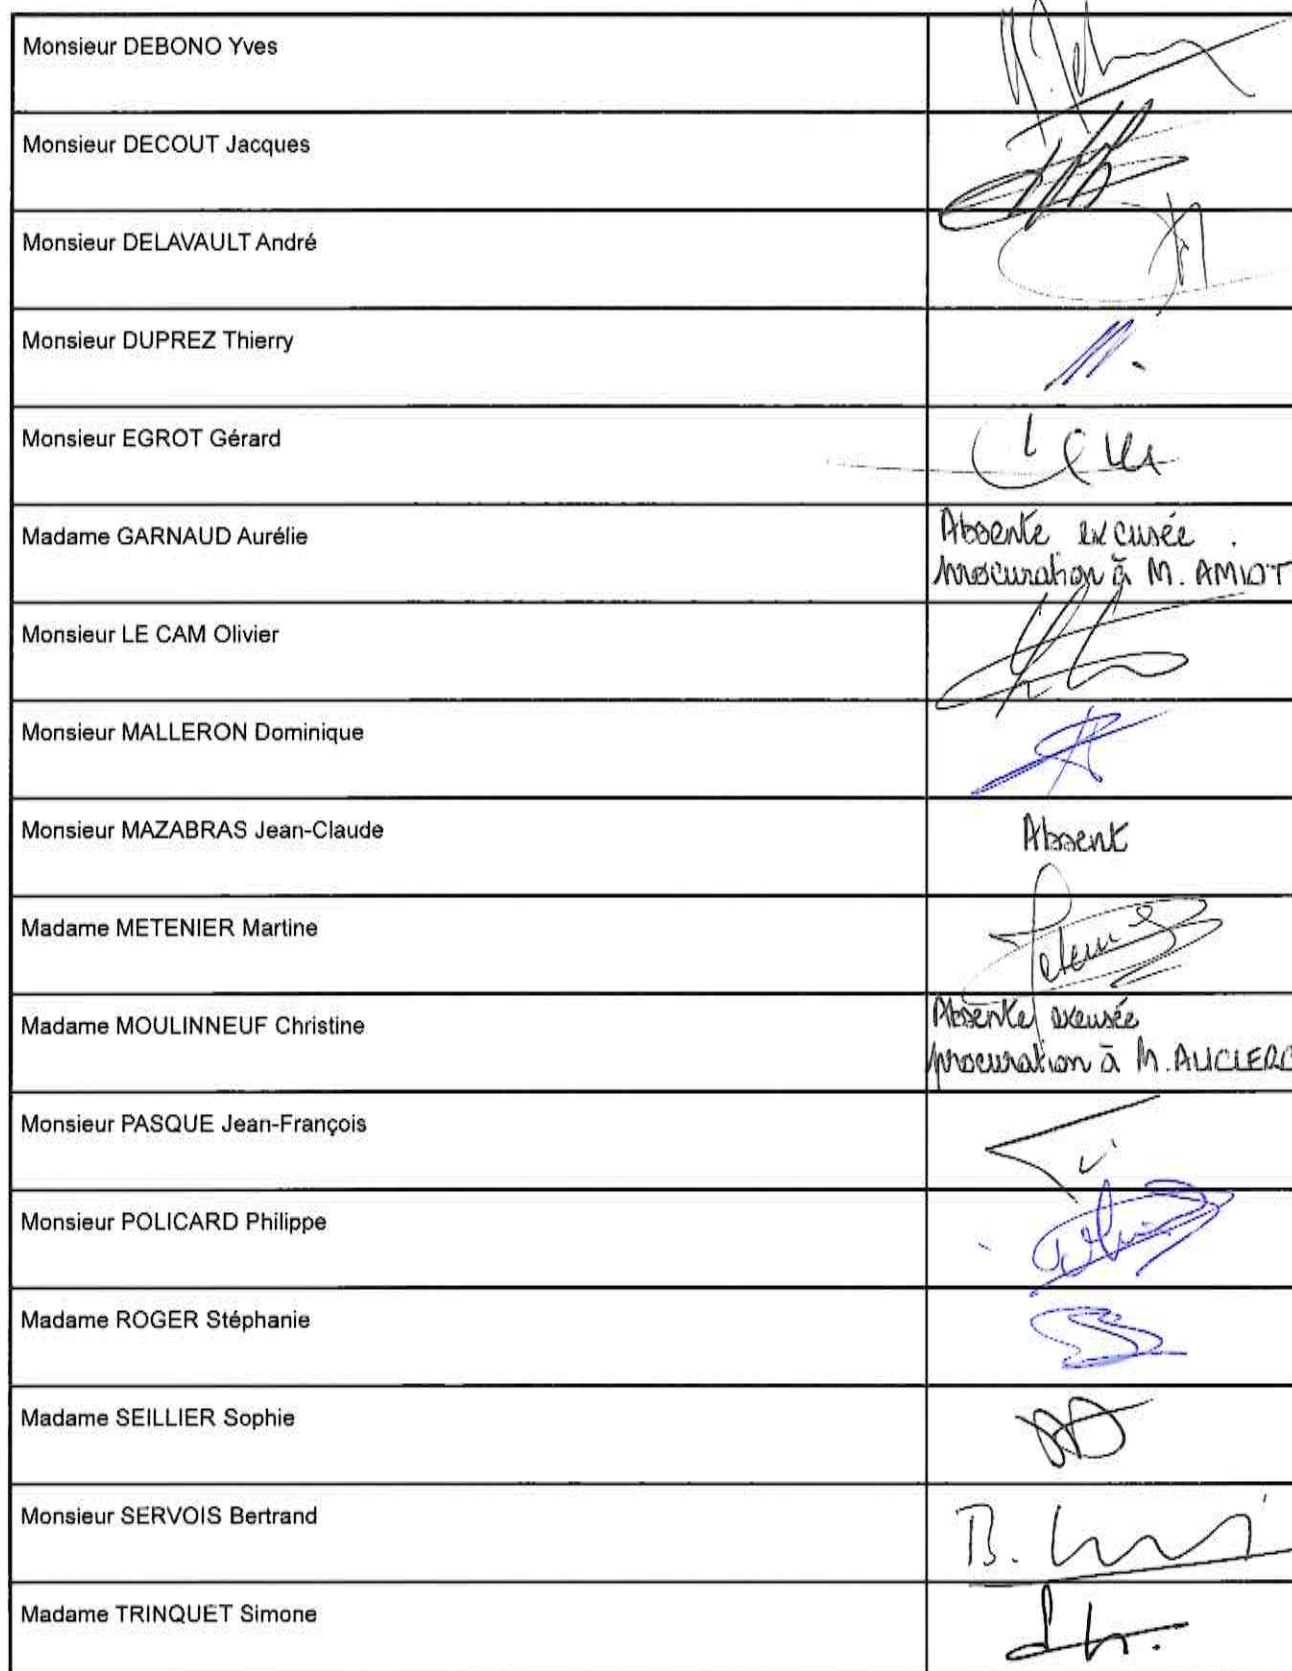 Monsieur DEBONO Yves
Monsieur DECOUT Jacques
Monsieur DELAVAULT André
Monsieur DUPREZ Thierry
Monsieur EGROT Gérard
Madame GARNAUD Aurélie
Absente excusée.
procuration à M. AMIOT
Monsieur LE CAM Olivier
Monsieur MALLERON Dominique
Monsieur MAZABRAS Jean-Claude
Absent
Madame METENIER Martine
Madame MOULINNEUF Christine
Absente excusée
procuration à M. AUCLERC
Monsieur PASQUE Jean-François
Monsieur POLICARD Philippe
Madame ROGER Stéphanie
Madame SEILLIER Sophie
Monsieur SERVOIS Bertrand
Madame TRINQUET Simone